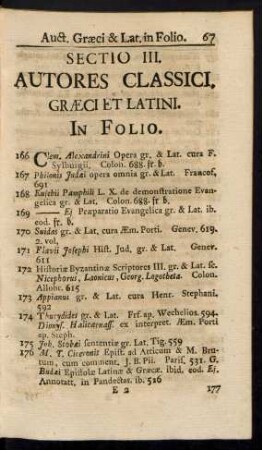 Auct. Græci & Lat. in Folio. 67
SECTIO III.
AUTORES CLASSICI,
GRÆCI ET LATINI.
IN FOLIO.
166 Clem. Alexandrini Opera gr. & Lat. cura F.
Sylburgii. Colon. 688. fr. b.
167 Philonis Judæi opera omnia gr. & Lat. Francof,
691
168 Eusebii Pamphili L. X. de demonstratione Evan-
gelica gr. & Lat. Colon. 688. fr b.
169 —— Ej Præparatio Evangelica gr. & Lat. ib.
eod. fr. b.
170 Suidas gr. & Lat. cura Æm. Porti. Genev, 619.
2. vol,
171 Flavii Josephi Hist. Jud, gr. & Lat. Genev.
611
172 Historiæ Byzantinæ Scriptores III. gr. & Lat. sc.
Nicephorus, Laonicus, Georg. Logotheta. Colon.
Allobr. 615
173 Appianus gr. & Lat. cura Henr. Stephani.
592
174 Thucydides gr. & Lat. Frf. ap. Wechelios. 594.
Dionys. Halicarnass. ex interpret. Æm. Porti
ap. Steph.
175 Joh. Stobæi sententiæ gr. Lat. Tig. 559
176 M. T. Ciceronis Epist. ad Atticum & M. Bru-
tum, cum comment. J. B. Pii. Paris. 531. G.
Budæi Epistolæ Latinæ & Græcæ. ibid. eod. Ej.
Annotatt, in Pandectas. ib. 526
E 2 177